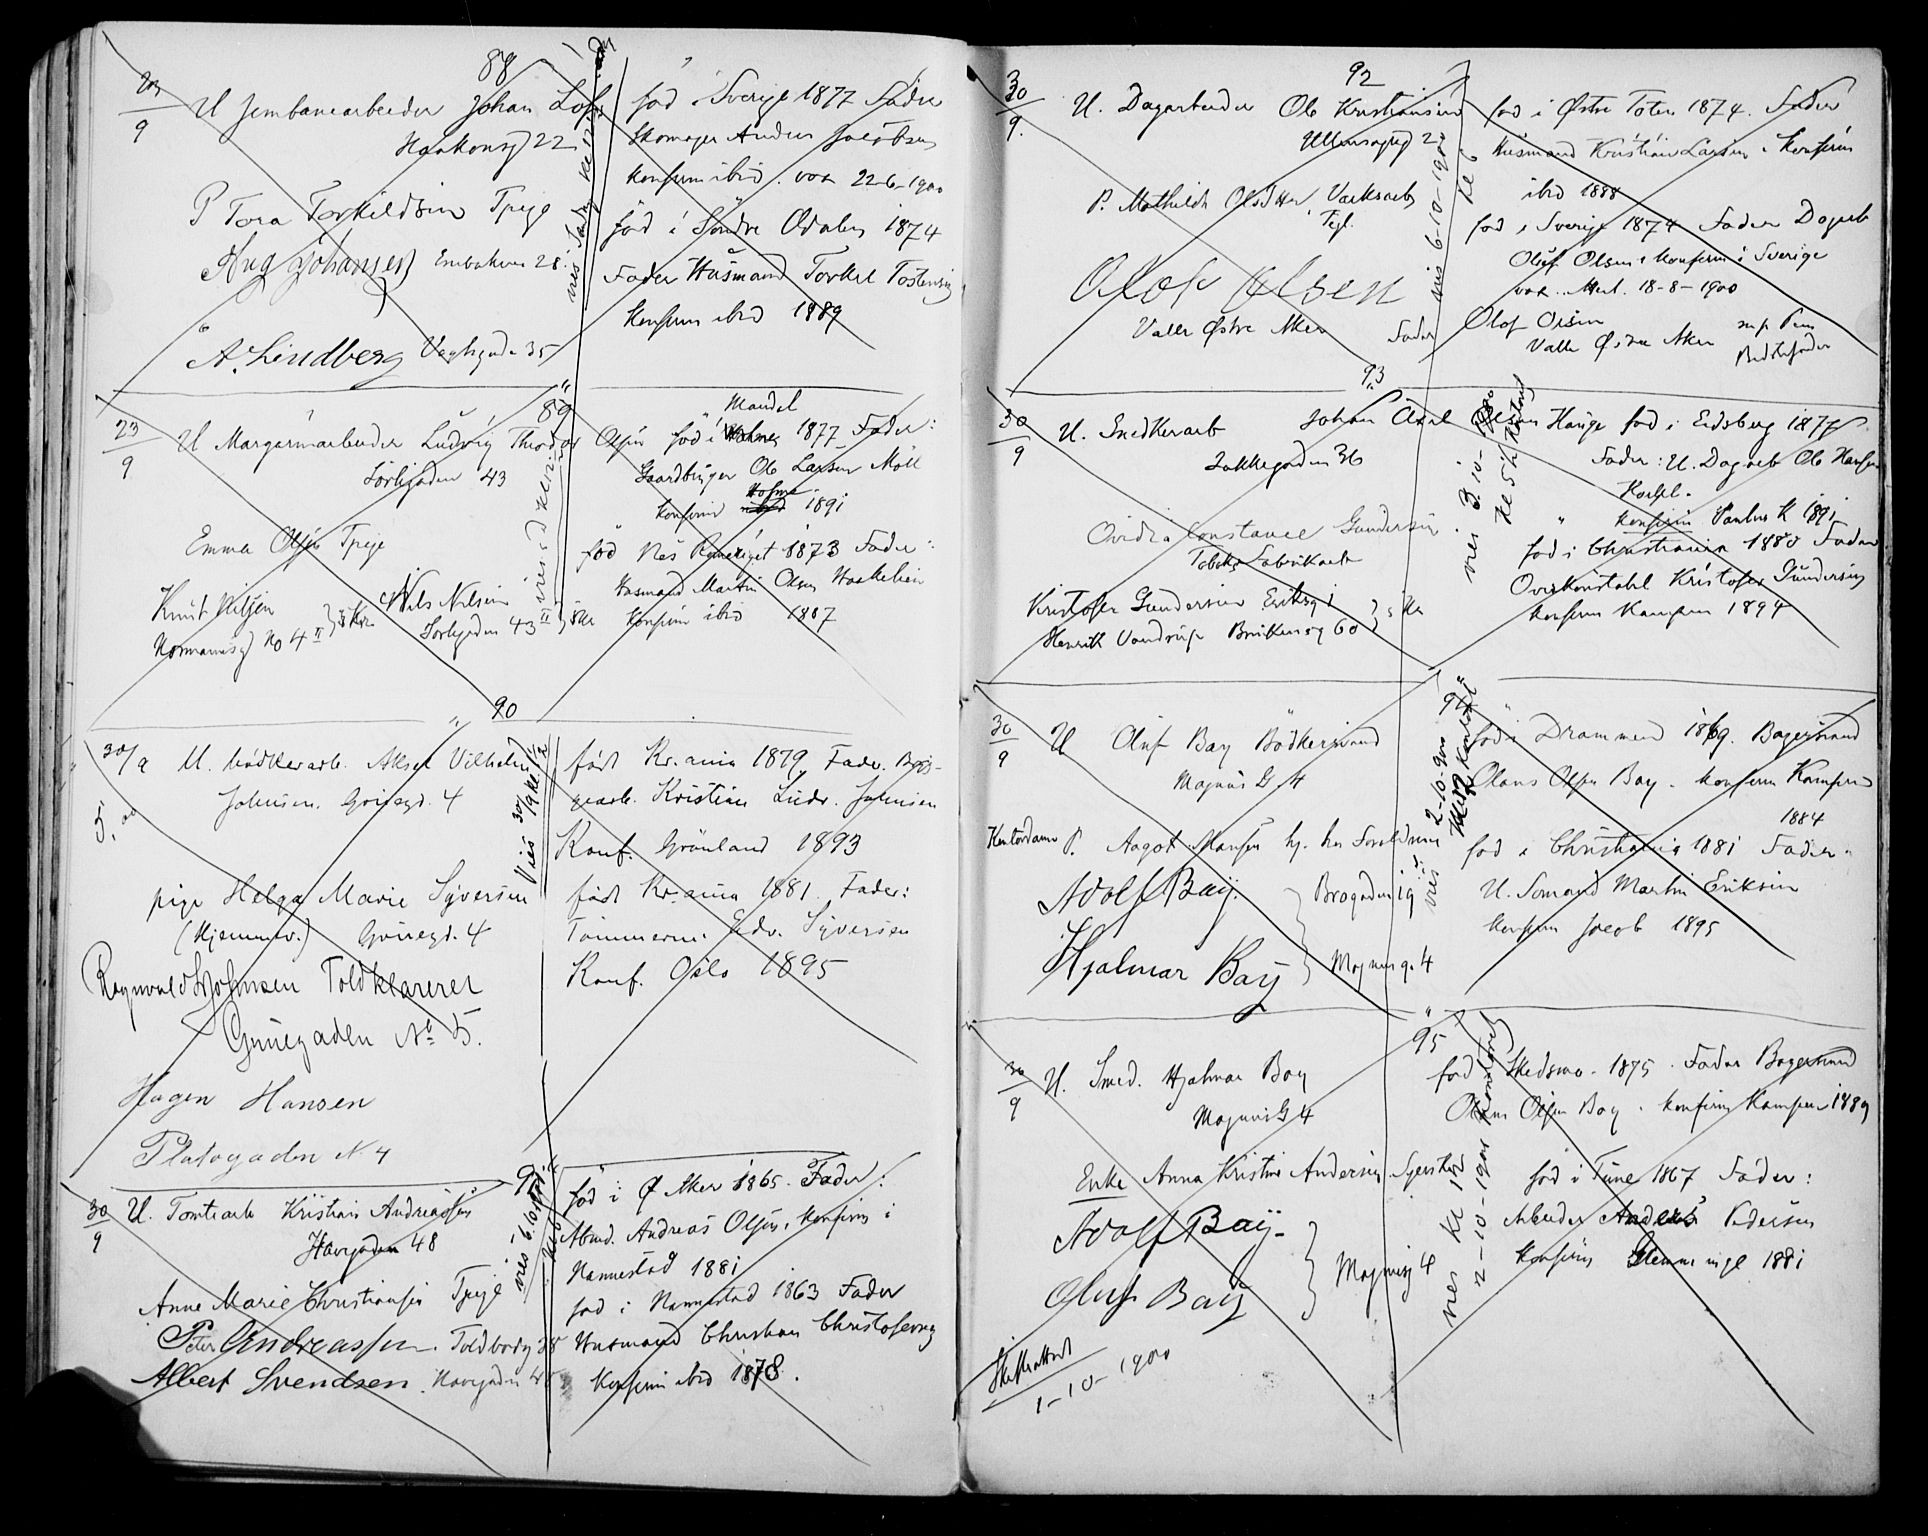 88
23/9 U Jernbanearbeider Johan Lof
Haakonsg 22
P Tora Torkildsen Tpige
Aug Johansen Enebakvn 28
A. Lindberg Vognsgade 35
født i Sverige 1877 Fader
Skomager Anders Jacobsen
Konfirm ibid. vac 22-6-1900
fød i Søndre Odalen 1874
Fader Husmand Torkel Tostensen
Konfirm ibid 1889
89
23/9 U Margarinarbeider Ludvig Theodor Olsen
Sørligaden 43
Emma Olsen Tpige
Knut Nilsen
Normannsg No 4 II 5 Kr
Nils Nilsen
Sørligaden 43 II 5 Kr
Mandal
fød i 1877 Fader:
Gaardbruger Ole Larsen Möll
Holme
Konfirm 1891
fød Nes Romeriget 1873 Fader:
Husmand Martin Olsen Haakelien
Konfirm ibid 1887
90
30/9 U. bødkerarb. Aksel Vilhelm
Johnsen. Grønegd. 4
5,00
Vies 30/9 Kl. 1/2
pige Helga Marie Syversen
(Hjemmev.) Grønegd. 4
Ragnvald Johnsen Toldklarerer
Grønegaden No 5.
Hagen Hansen
Platogaden N. 4
født Kr.ania 1879 Fader. Brøs-
gearb. Kristian Ludv. Johnsen
Konf. Grønland 1893
født Kr.ania 1881. Fader:
Tømmerm. Edv. Syversen
Konf. Oslo 1895
91
30/9 U. Tomtearb Kristian Andreassen
Havegaden 48
Anne Marie Christiansen Tpige
Peter Andreassen. Toldbodg 38
Albert Svendsen. Havegaden 48
fød i Ø Aker 1865. Fader:
Abmd. Andreas Olsen. Konfirm i
Nannestad 1881
fød i Nannestad 1863 Fader
Husmand Christian Christofersen
Konfirm ibid 1878.
92
30/9. U. Dagarbeider Ole Kristiansen
Ullensagerg 2
P. Mathilde Olsdtter Værksarb
Tegl.
Olof Olsen
Valle Østre Aker Fader
vies 6-10-1900 Kl 6
fød i Østre Toten 1874. Fader
Husmand Kristian Larsen. Konfirm
ibid 1888
fød i Sverige 1874 Fader Dagarb
Oluf Olsen. Konfirm i Sverige
vac. Att. 18-8-1900
Olof Olsen
Valle Østre Aker
m.p. Pen
Bedstefader
93
30/9 U. Snedkerarb Johan Axel Olsen Hauge
Jakkegaden 36
Ovidia Constance Gundersen
Tobaks Fabrikarb
Kristofer Gundersen Eriksg 1
Henrik Vandrup Brinkensg 60 5 Kr
vies 3.10-1900 Kl 5½
fød i Eidsberg 1877
Fader: U. Dagarb Ole Hansen
Konfirm Paulus K 1891
fød i Christiania 1880 Fader
Overkonstabl Kristofer Gundersen
Konfirm Kampen 1894
94
30/9 U Oluf Bay Bödkersvend
Magnus G. 4
Kontordame P. Aagot Hansen hj. hos Forældrene
Adolf Bay. Brogaden 19
Hjalmar Bay Magnus g. 4
vies 2-10-900
fød i Drammen 1869. Bagersvend
Olaus Olsen Bay. Konfirm Kampen
1884
fød i Christiania 1881 Fader.
U. Sømand Martin Eriksen
Konfirm Jacob 1895
95
30/9 U. Smed. Hjalmar Bay
Magnus G 4
Enke Anna Kristine Andersen Syerske
Adolf Bay.
Oluf Bay Magnusg 4
Vies Kl 12 2-10-1900 Kontoret
fød Skedsmo. 1875. Fader Bagersvend
Olaus Olsen Bay. Konfirm Kampen 1889
fød i Tune 1867 Fader:
Arbeider Anders Pedersen
Konfirm Glemminge 1881
Skifteattest
1-10-1900